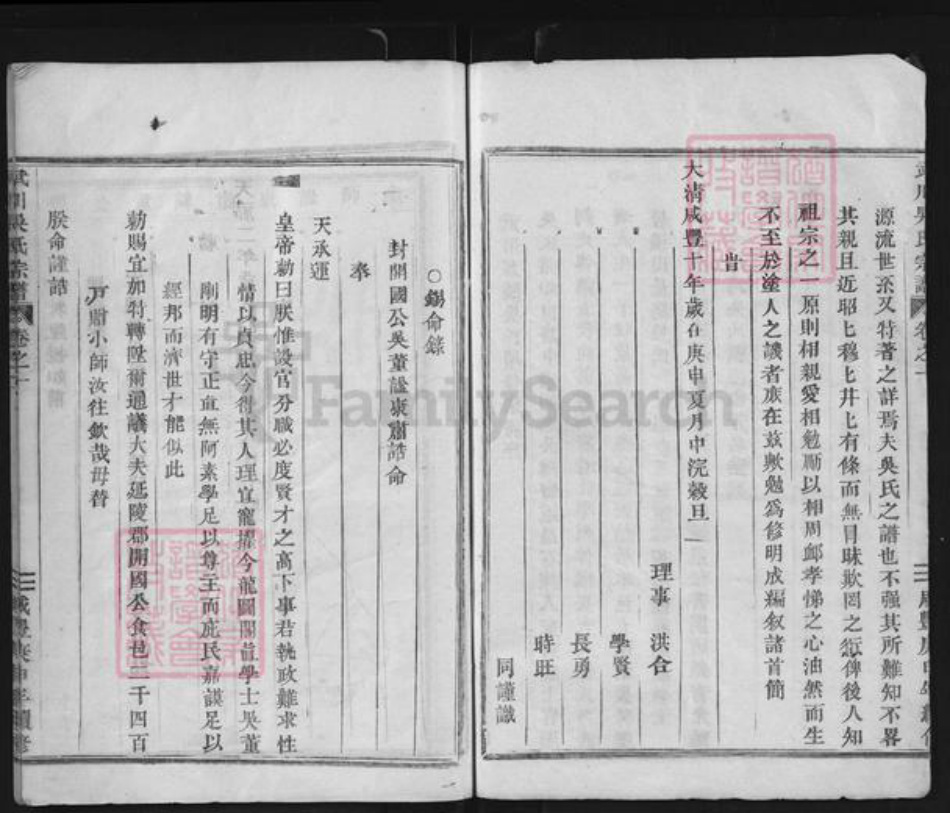 源流世系又特著之詳焉夫吳氏之譜也不强其所難知不畧
其親且近昭匕穆匕井匕有條而無目昧欺罔之衒俾後人知
祖宗之一原則相親愛相勉勵以相周邮孝悌之心油然而生
不至於塗人之譏者庶在兹歟勉爲修明成編叙諸首簡
旹
大清咸豐十年歲在庚申夏月中浣穀旦
理事 洪合
學賢
長勇
時旺
同謹識
○錫命錄
封開國公吳董諡康肅誥命
奉
天承運
皇帝勅曰朕惟設官分職必度賢才之高下事若執政難求性
情以貞忠今得其人理宜寵擢今龍圖閣直學士吳董
剛明有守正直無阿素學足以尊王而庇民嘉謨足以
經邦而濟世才能似此
勅賜宜加特轉陞爾通議大夫延陵郡開國公食邑二千四百
戸贈小師汝往欽哉毋替
朕命謹誥
武川吳氏宗譜 卷之一
咸豐庚申年續修
FamilySearch